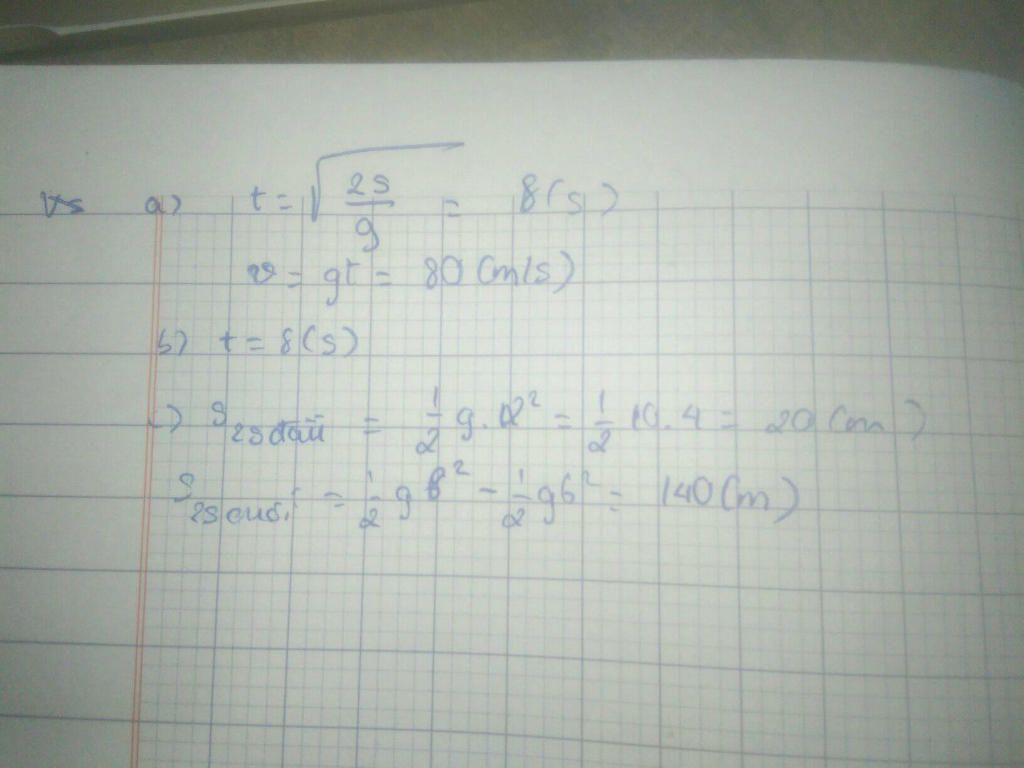 V5 a) t = √(2s/g) = 8(s)
v = gt = 80 (m/s)
b) t = 8(s)
c) S 2s đầu = 1/2 g.2² = 1/2 10.4 = 20 (m)
S 2s cuối = 1/2 g8² - 1/2 g6² = 140 (m)